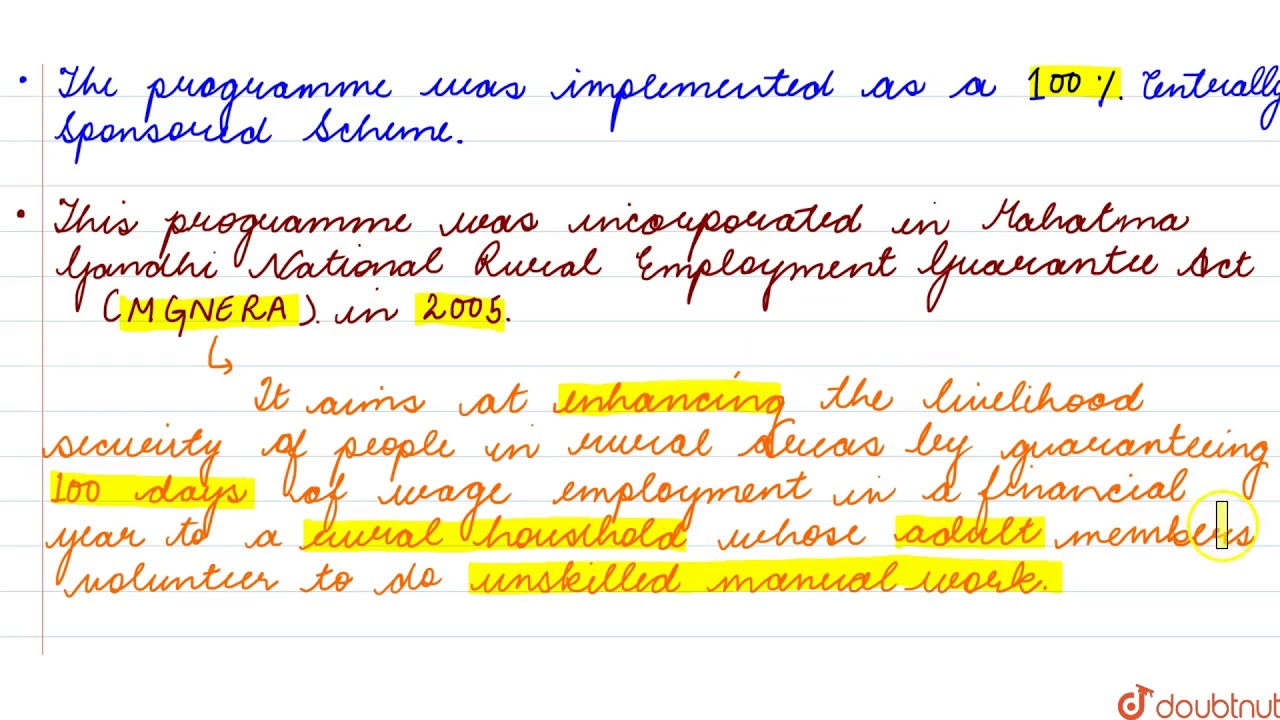 • The programme was implemented as a 100%. Centrally
Sponsored Scheme.
• This programme was incorporated in Mahatma
Gandhi National Rural Employment Guarantee Act
(MGNERA). in 2005.
↳
It aims at enhancing the livelihood
security of people in rural areas by guaranteeing
100 days of wage employment in a financial
year to a rural household whose adult members
volunteer to do unskilled manual work.
doubtnut